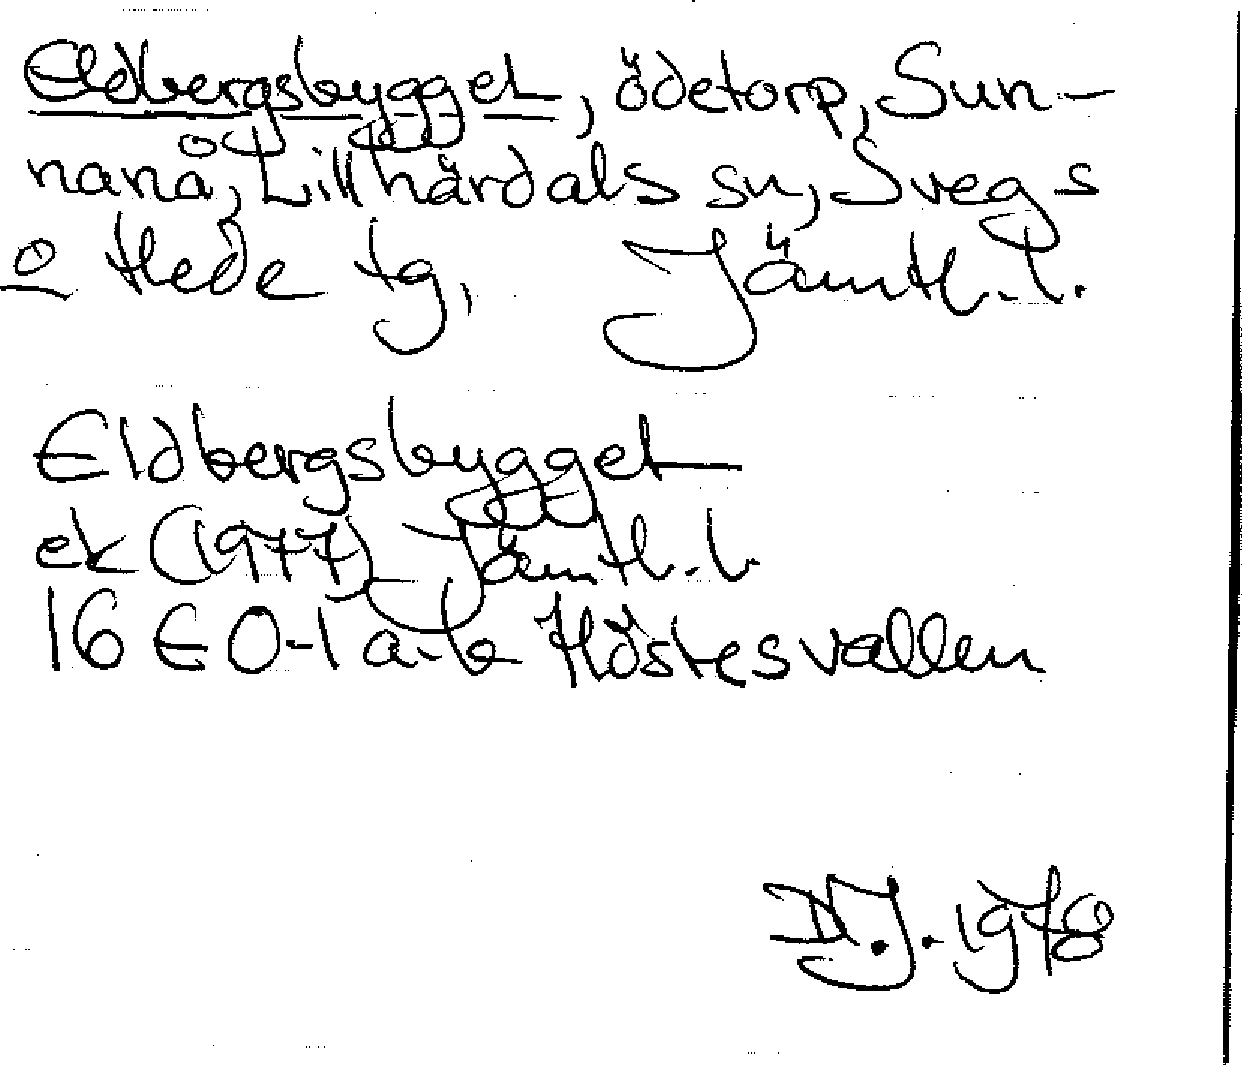 Eldbergsbygget, ödetorp, Sun-
nanå, Lillhärdals sn, Svegs
o Hede tg, Jämtl. l.
Eldbergsbygget
ek (1977) Jämtl. l.
16 E 0-1 a-b Höstesvallen
M.J. 1978